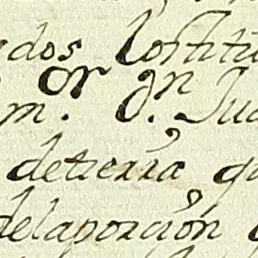 ados Constitu
m.or D.n Jua
detierra, q
delaporción